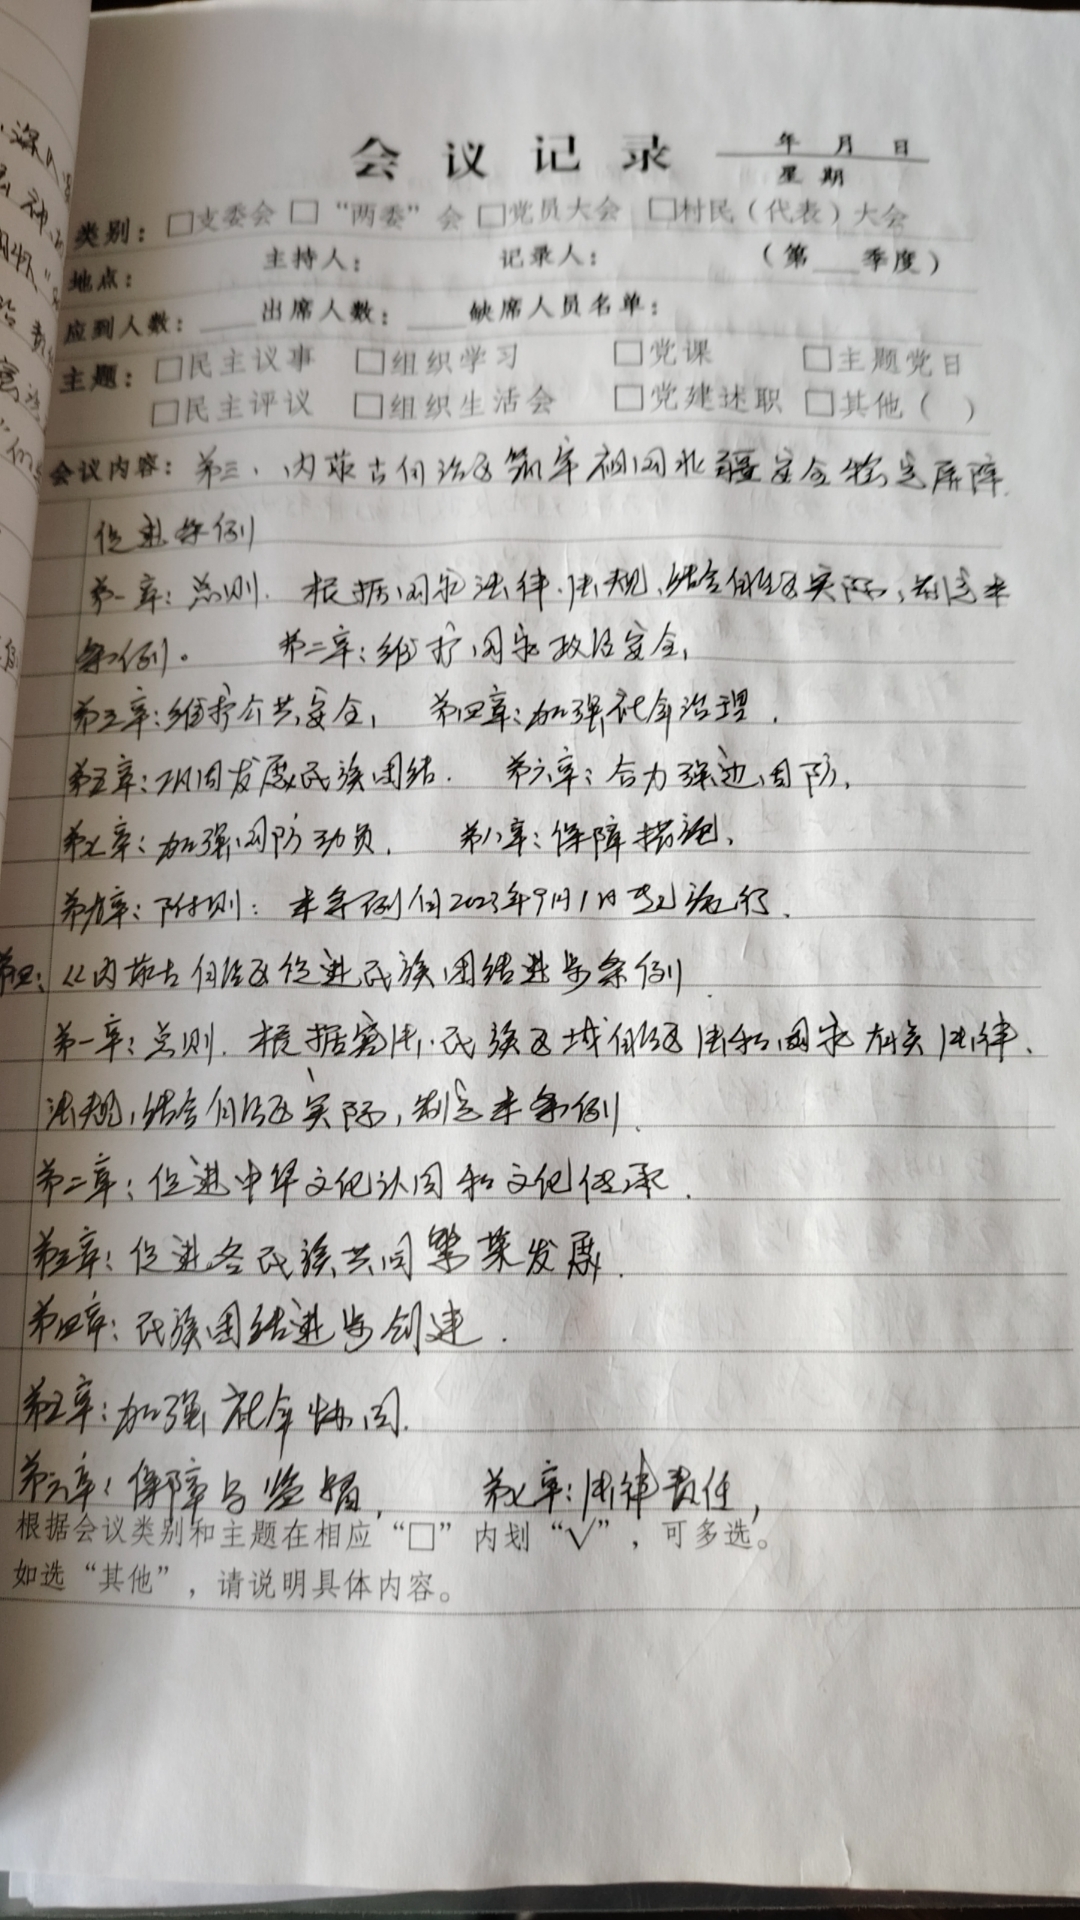 会议记录 年 月 日
星 期
类别：□支委会 □“两委”会 □党员大会 □村民（代表）大会
地点： 主持人： 记录人： （第__季度）
应到人数：____出席人数：____缺席人员名单：
主题：□民主议事 □组织学习 □党课 □主题党日
□民主评议 □组织生活会 □党建述职 □其他（ ）
会议内容：第三、内蒙古自治区筑牢祖国北疆安全稳定屏障
促进条例
第一章：总则. 根据国家法律、法规,结合自治区实际,制定本
条例。 第二章：维护国家政治安全,
第三章：维护公共安全, 第四章：加强社会治理.
第五章：巩固发展民族团结. 第六章：合力强边固防,
第七章：加强国防动员. 第八章：保障措施,
第九章：附则：本条例自2023年9月1日起施行.
第四：《内蒙古自治区促进民族团结进步条例
第一章：总则. 根据宪法、民族区域自治法和国家有关法律、
法规,结合自治区实际,制定本条例.
第二章：促进中华文化认同和文化传承.
第三章：促进各民族共同繁荣发展.
第四章：民族团结进步创建.
第五章：加强社会协同.
第六章：保障与监督, 第七章：法律责任,
根据会议类别和主题在相应“□”内划“√”，可多选。
如选“其他”，请说明具体内容。